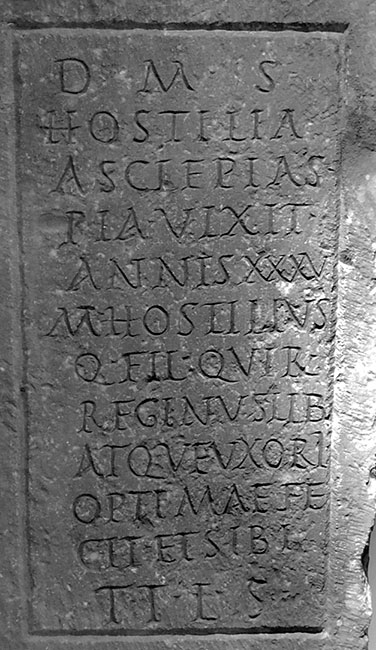 D · M · S ·
HOSTILIA
ASCLEPIAS
PIA · VIXIT ·
ANNIS XXXV
M · HOSTILIVS
Q · FIL · QVIR ·
REGINVS LIB
ATQVE VXORI
OPTIMAE FE
CIT · ET SIBI ·
T · T · L · S ·